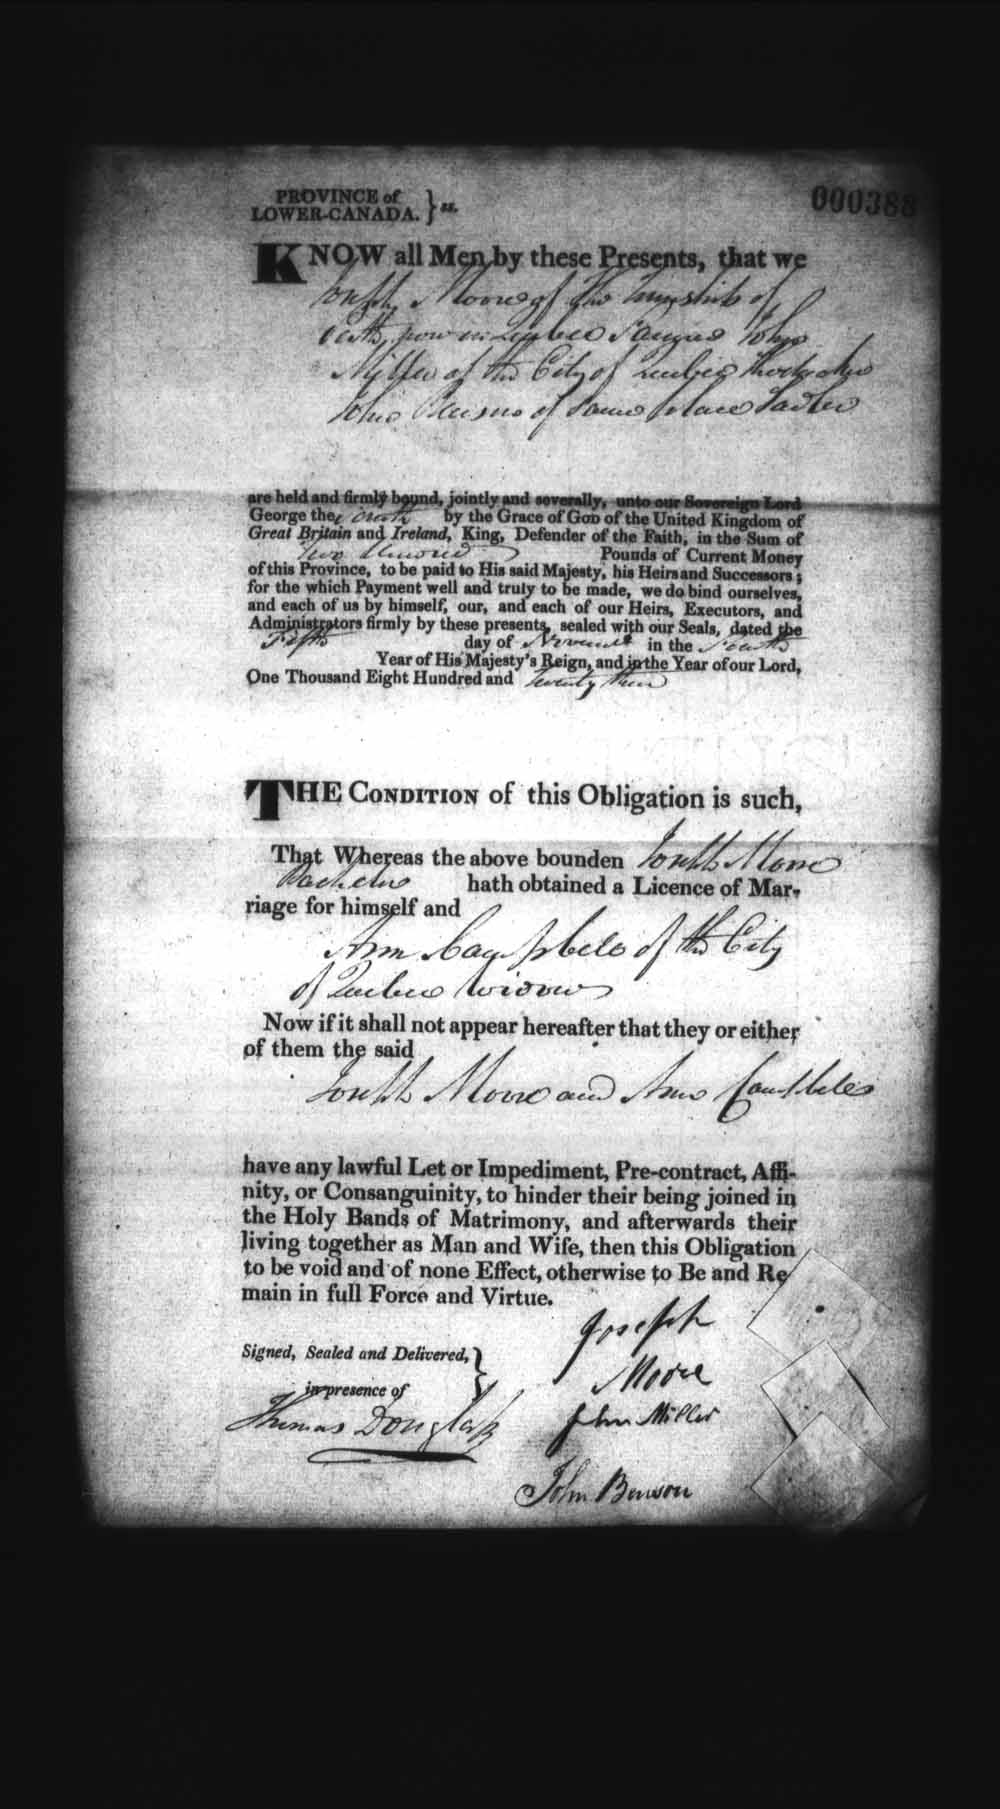 PROVINCE of
LOWER-CANADA. } ss.
000388
KNOW all Men by these Presents, that we
Joseph Moore of the Township of
now in Quebec John
Miller of the City of Quebec
John of same place
are held and firmly bound, jointly and severally, unto our Sovereign Lord
George the Fourth by the Grace of GOD of the United Kingdom of
Great Britain and Ireland, King, Defender of the Faith, in the Sum of
Two Hundred Pounds of Current Money
of this Province, to be paid to His said Majesty, his Heirs and Successors;
for the which Payment well and truly to be made, we do bind ourselves,
and each of us by himself, our, and each of our Heirs, Executors, and
Administrators firmly by these presents, sealed with our Seals, dated the
Fifth day of November in the Fourth
Year of His Majesty's Reign, and in the Year of our Lord,
One Thousand Eight Hundred and Twenty three
THE CONDITION of this Obligation is such,
That Whereas the above bounden Joseph Moore
Bachelor hath obtained a Licence of Mar-
riage for himself and
Ann Campbele of the City
of Quebec Widow
Now if it shall not appear hereafter that they or either
of them the said
Joseph Moore and Ann Campbele
have any lawful Let or Impediment, Pre-contract, Affi-
nity, or Consanguinity, to hinder their being joined in
the Holy Bands of Matrimony, and afterwards their
living together as Man and Wife, then this Obligation
to be void and of none Effect, otherwise to Be and Re
main in full Force and Virtue.
Signed, Sealed and Delivered, }
in presence of
Thomas Douglass
Joseph
Moore
John Miller
John Benson